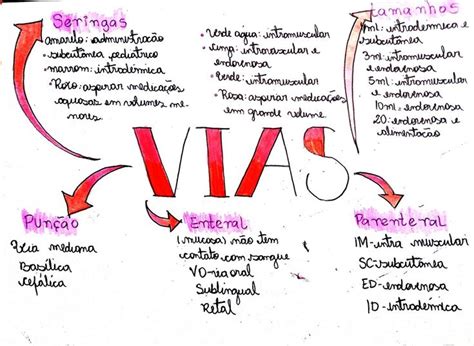 Seringas
amarelo: administração
subcutânea pediátrico
marrom: intradérmica
Roxo: aspirar medicações
aquosas em volumes me-
nores.
•Verde água: intramuscular
•Cinza: intramuscular e
endovenosa
•Verde: intramuscular
•Rosa: aspirar medicações
em grande volume.
tamanhos
1ml: intradérmica e
subcutânea
3ml: intramuscular
e endovenosa
5ml: intramuscular
e endovenosa
10ml: endovenosa
20: endovenosa e
alimentação
VIAS
Punção
mediana
Basílica
cefálica
Enteral
(mucosas) não tem
contato com sangue
VO-via oral
Sublingual
Retal
Parenteral
IM-intra muscular
SC-subcutânea
ED-endovenosa
ID-intradérmica